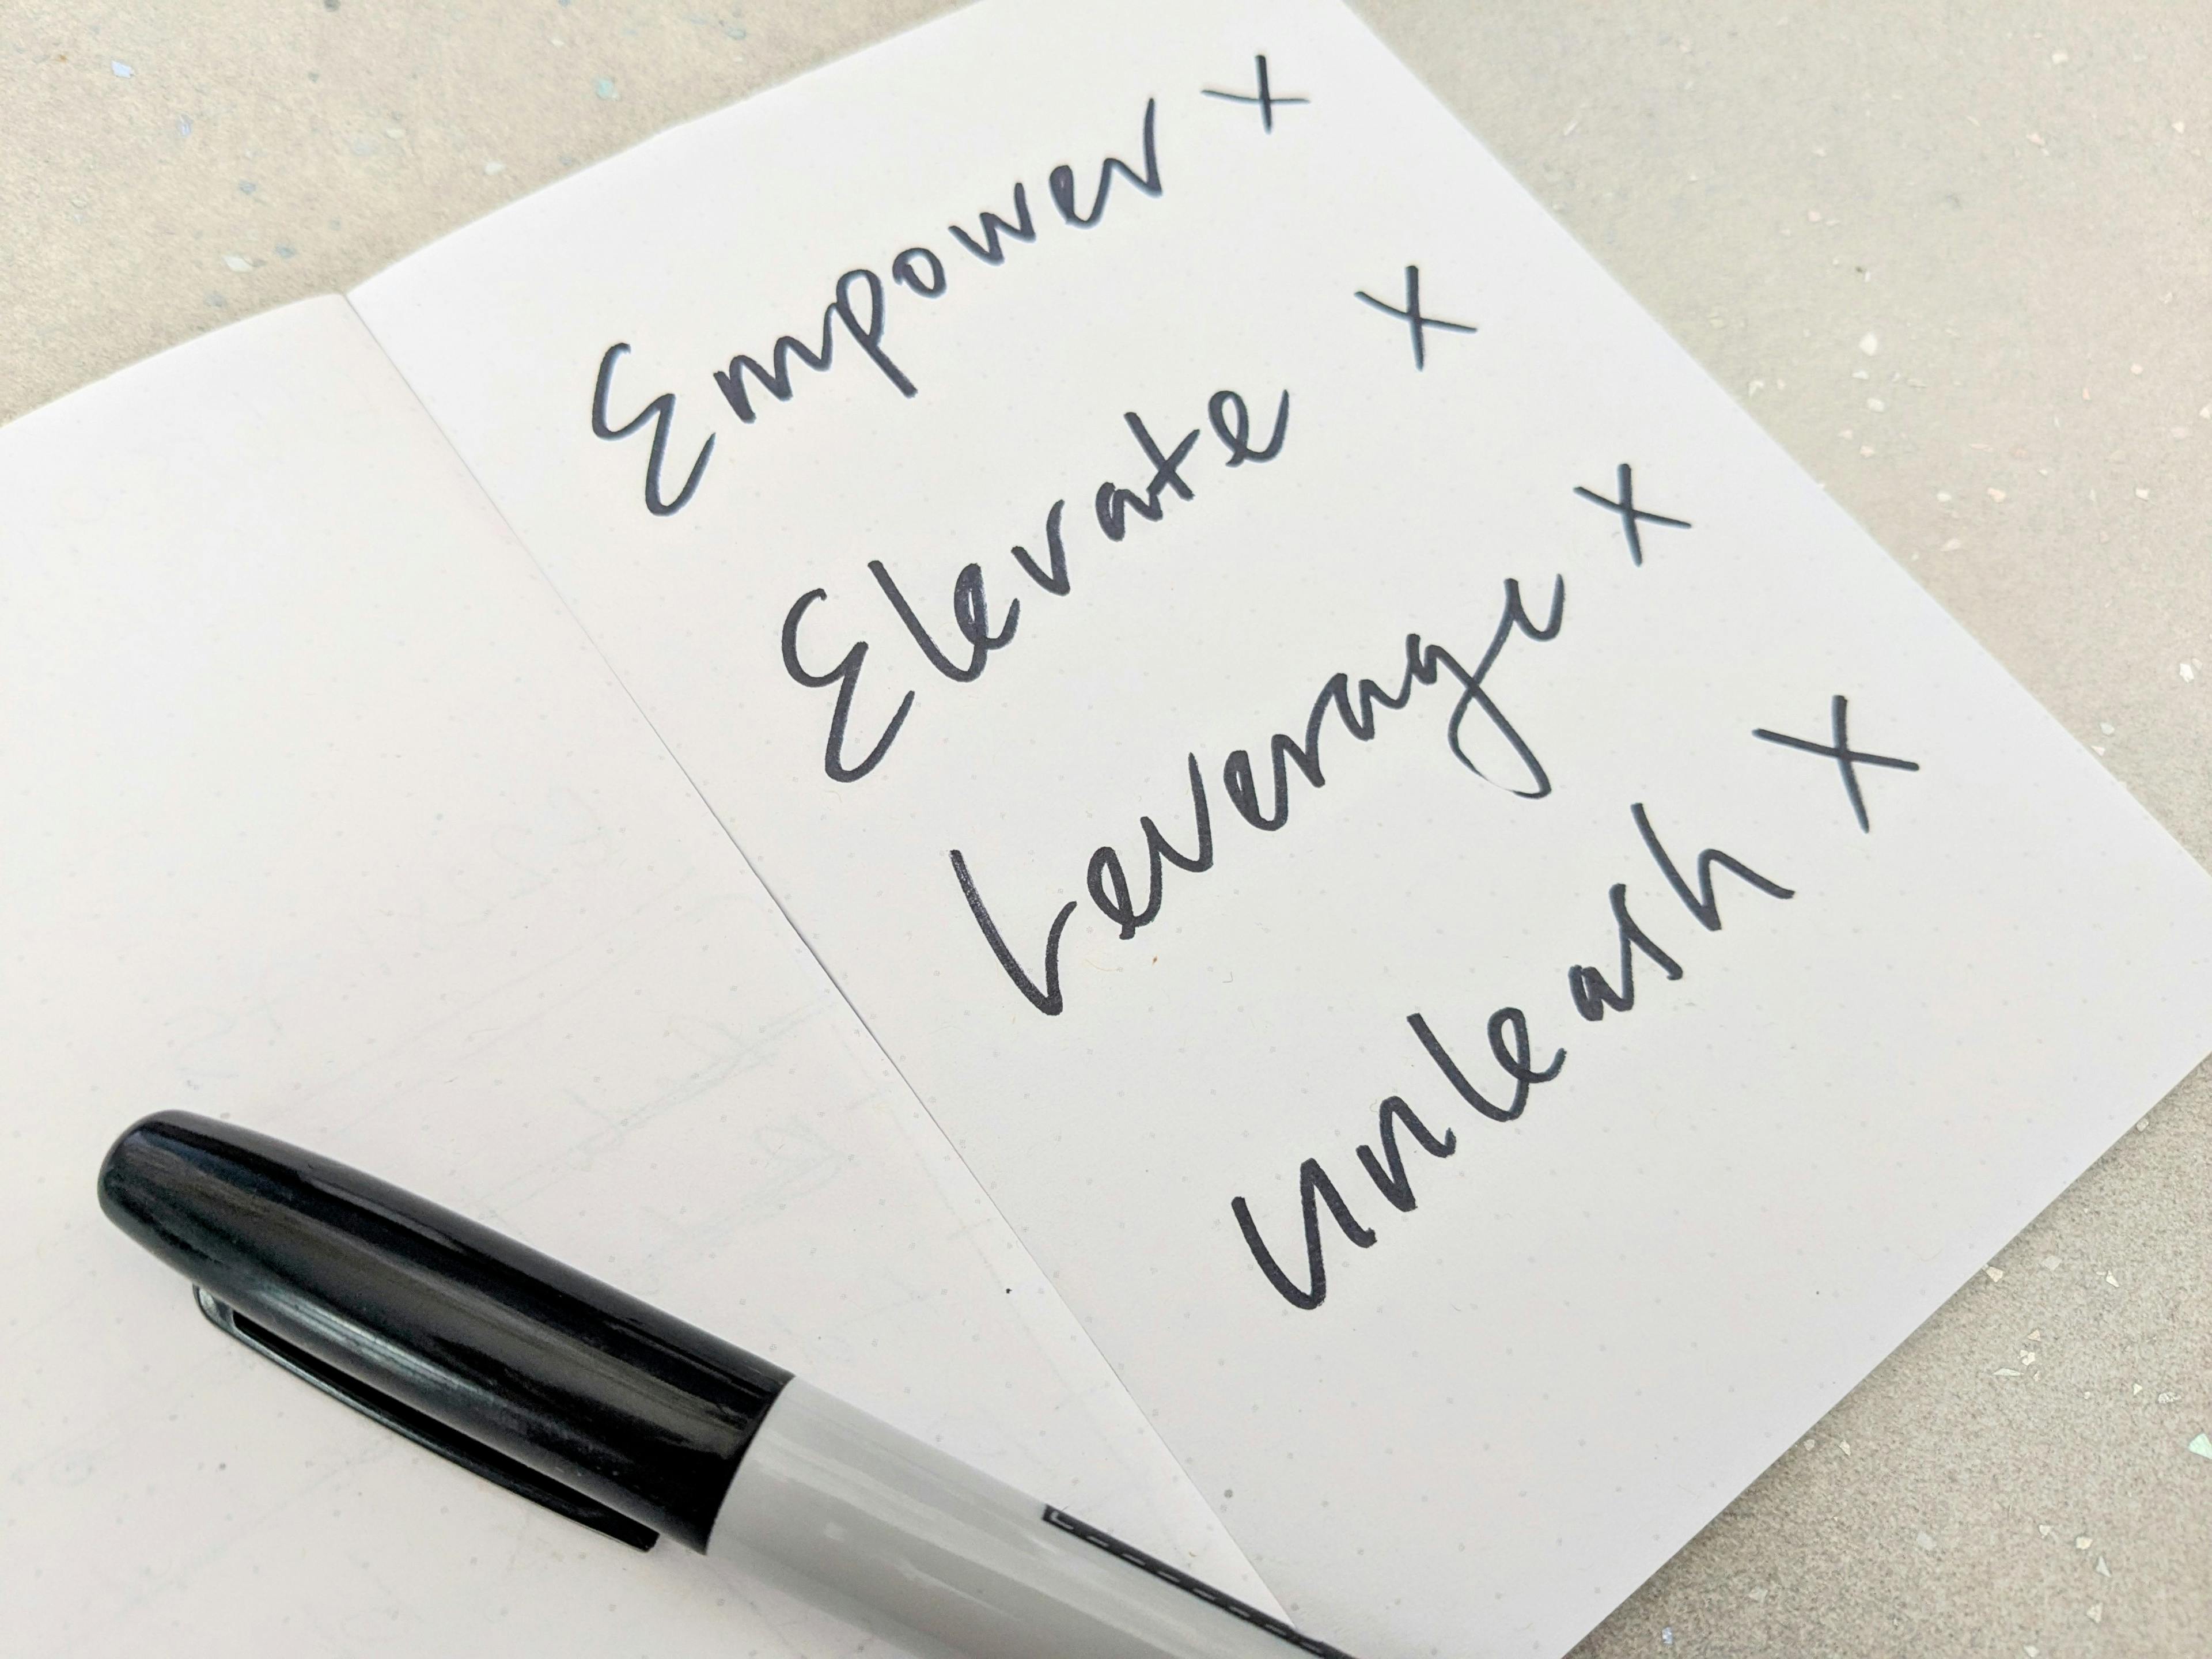 Empower x
Elevate x
Leverage x
Unleash x